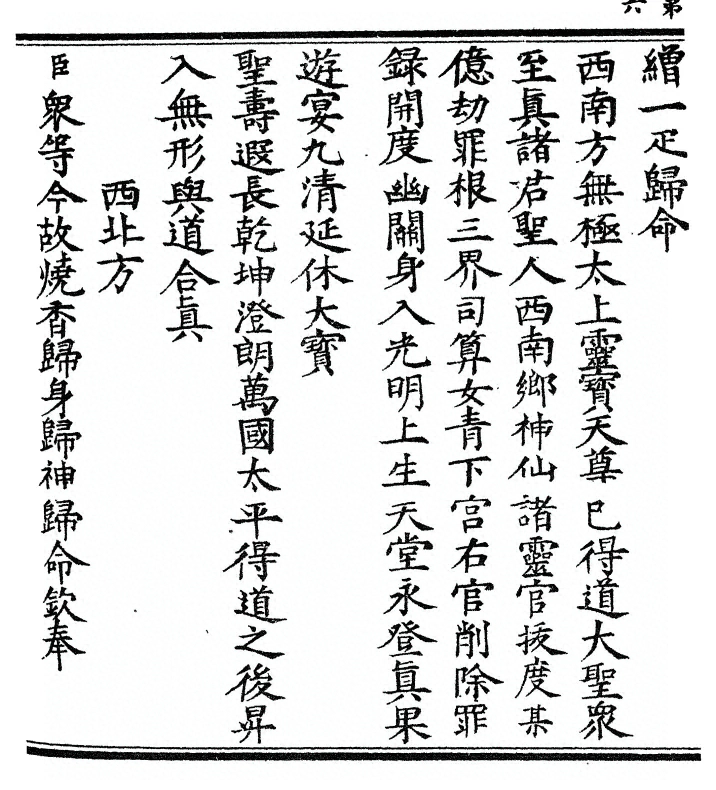 第六
繒一疋歸命
西南方無極太上靈寳天尊已得道大聖衆
至眞諸君聖人西南鄉神仙諸靈官拔度某
億劫罪根三界司算女青下宫右官削除罪
録開度幽關身入光明上生天堂永登眞果
遊宴九清延休大寳
聖壽遐長乾坤澄朗萬國太平得道之後昇
入無形與道合眞
西北方
臣衆等今故燒香歸身歸神歸命欽奉